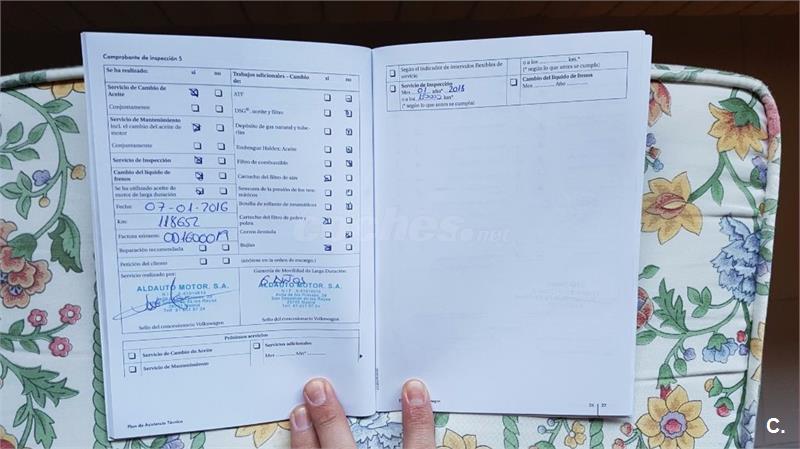 Comprobante de inspección 5
Se ha realizado: sí no
Servicio de Cambio de
Aceite
Conjuntamente
Servicio de Mantenimiento
Incl. el cambio del aceite de
motor
Conjuntamente
Servicio de Inspección
Cambio del líquido de
frenos
Se ha utilizado aceite de
motor de larga duración
Fecha: 07-01-2016
Km: 118652
Factura número:
Reparación recomendada
Petición del cliente
Servicio realizado por:
ALDAUTO MOTOR, S.A.
Sello del concesionario Volkswagen
Trabajos adicionales - Cambio
de: sí no
ATF
DSG®, aceite y filtro
Depósito de gas natural y tube-
rías
Embrague Haldex: Aceite
Filtro de combustible
Cartucho del filtro de aire
Sensores de la presión de los neu-
máticos
Botella de rellanto de neumáticos
Cartucho del filtro de polvo y
polen
Correa dentada
Bujías
(anótese en la orden de encargo.)
Garantía de Movilidad de Larga Duración
ALDAUTO MOTOR, S.A.
Sello del concesionario Volkswagen
Próximos servicios
Servicio de Cambio de Aceite
Servicio de Mantenimiento
Servicios adicionales
Mes Año*
Plan de Asistencia Técnica
Según el indicador de intervalos flexibles de
servicio
Servicio de Inspección
Mes 01 año* 2018
o a los km*
(* según lo que antes se cumpla)
o a los km.*
(* según lo que antes se cumpla)
Cambio del líquido de frenos
Mes Año
coches.net
26 27
C.